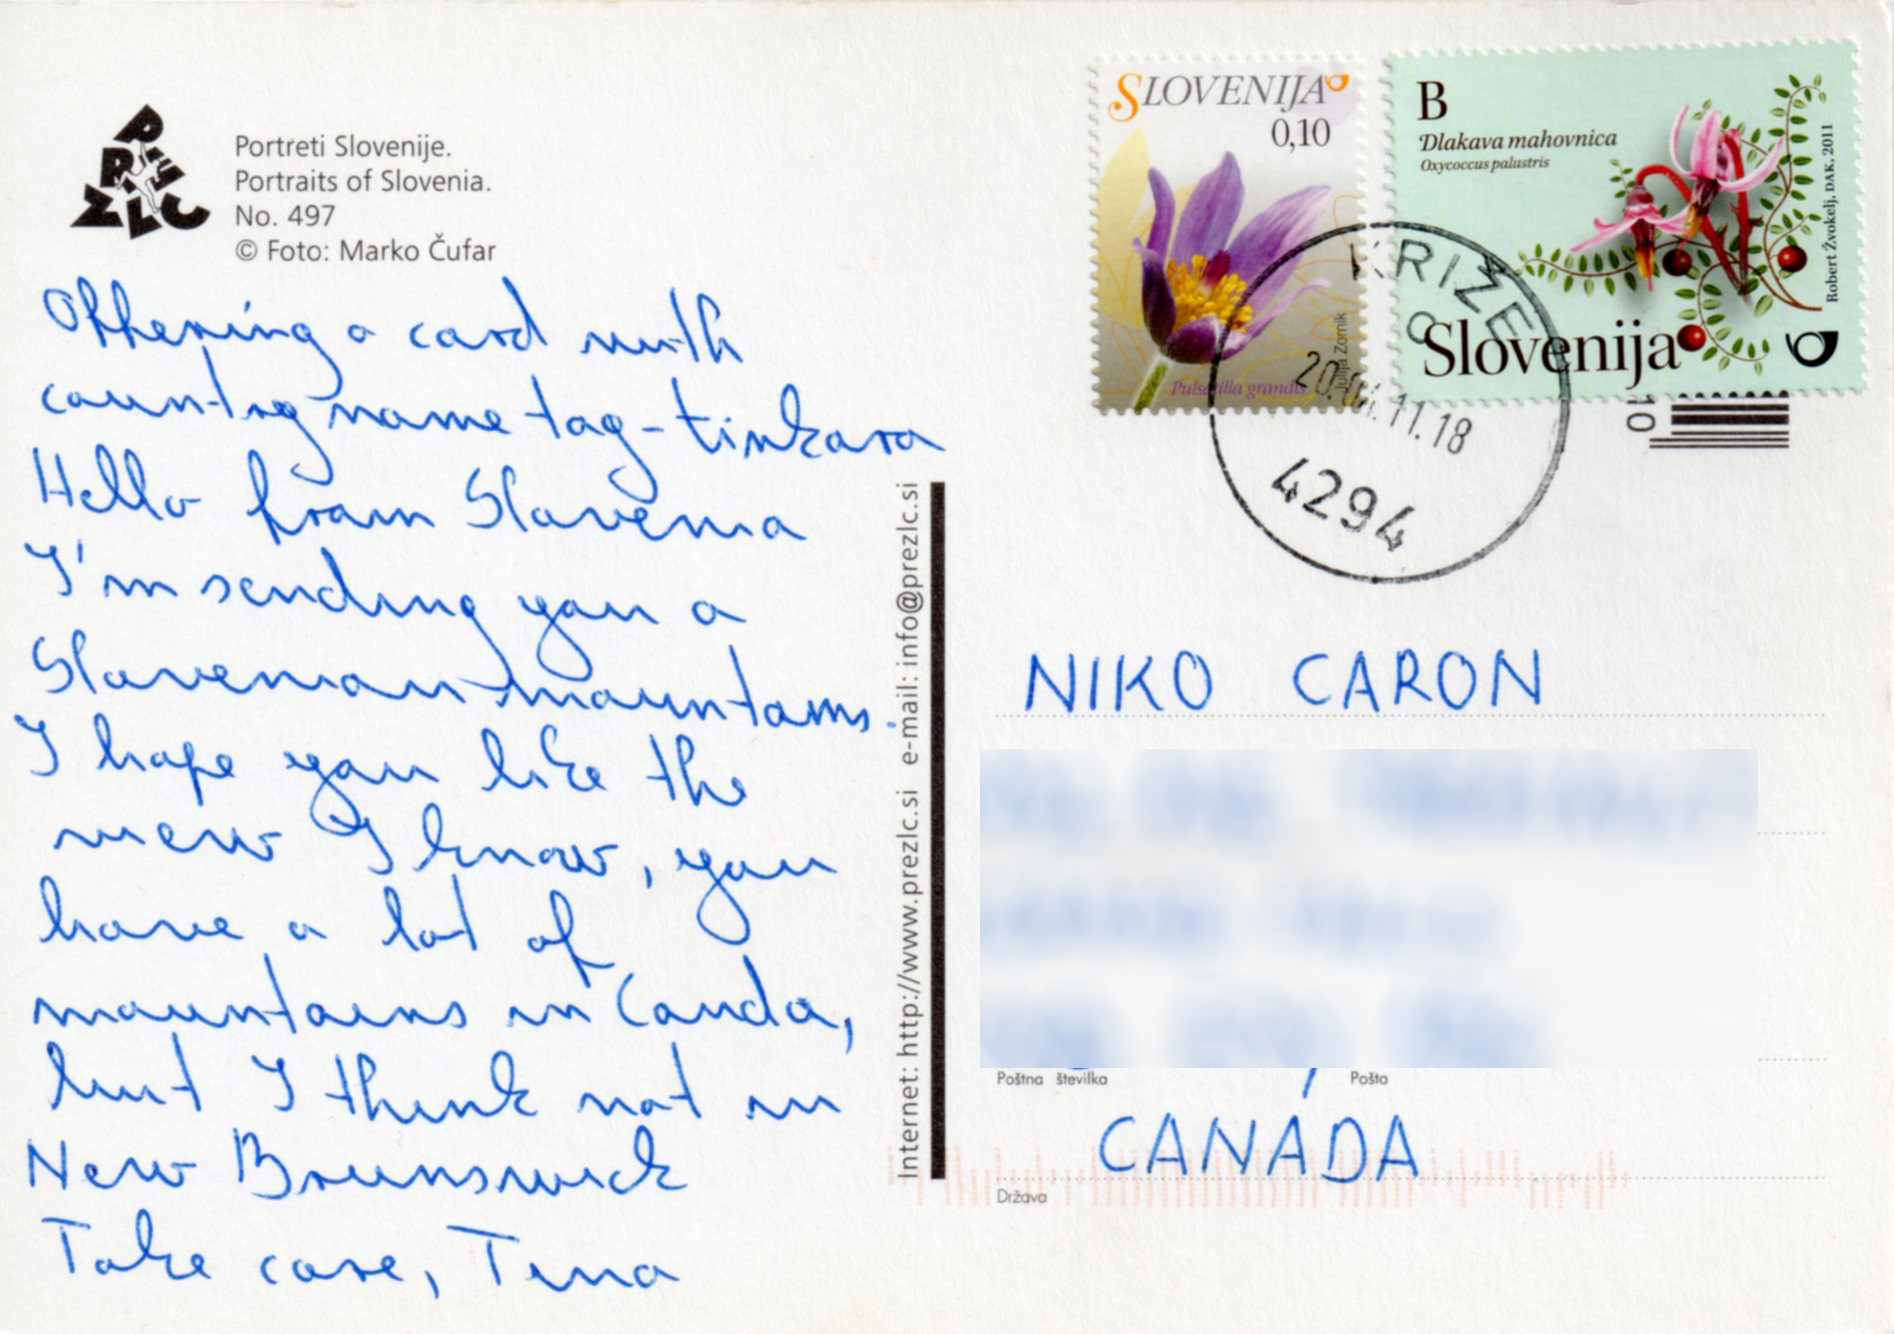 PREZLC
Portreti Slovenije.
Portraits of Slovenia.
No. 497
© Foto: Marko Čufar
Offering a card with
country name tag - tinkara
Hello from Slovenia
I'm sending you a
Slovenian mountains.
I hope you like the
view I know, you
have a lot of
mountains in Canda,
but I think not in
New Brunswick
Take care, Tina
Internet: http://www.prezlc.si e-mail: info@prezlc.si
SLOVENIJA
0,10
Julija Zornik
Pulsatilla grandis
B
Dlakava mahovnica
Oxycoccus palustris
Robert Žvokelj, DAK, 2011
Slovenija
KRIŽE
C
20.04.11.18
4294
10
NIKO CARON
Poštna številka
Pošta
CANADA
Država